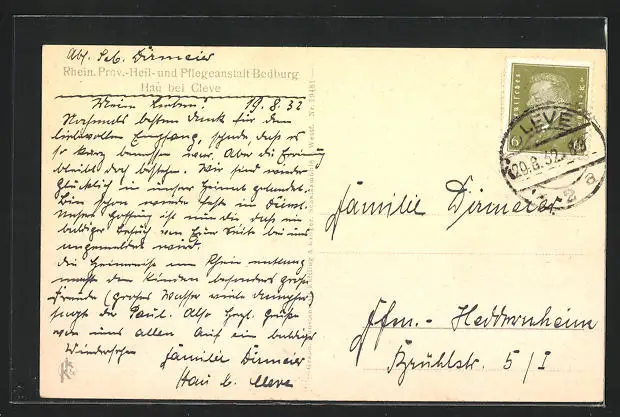 Abs. Seb. Dirmeier
Rhein. Prov.-Heil- und Pflegeanstalt Bedburg
Hau bei Cleve
Meine Lieben! 19.8.32
Nochmals besten Dank für den
liebevollen Empfang, schade, daß es
so kurz bemessen war. Aber die Erinnerung
bleibt doch bestehen. Wir sind wieder
glücklich in unsrer Heimat gelandet.
Bin schon wieder feste im Dienst.
Unsere Hoffnung ist nun die daß ein
baldiger Besuch von Eurer Seite bei uns
angemeldet wird.
Die Heimreise am Rhein entlang
machte den Kindern besonders große
Freude (großes Wasser viele Dampfer)
sagte der Paul. Also herzl. Grüße
von uns allen Auf ein baldiges
Wiedersehen Familie Dirmeier
Hau b. Cleve
Familie Dirmeier
Ffm.- Heddernheim
Brühlstr. 5/I
CLEVE
20.8.32
2 a